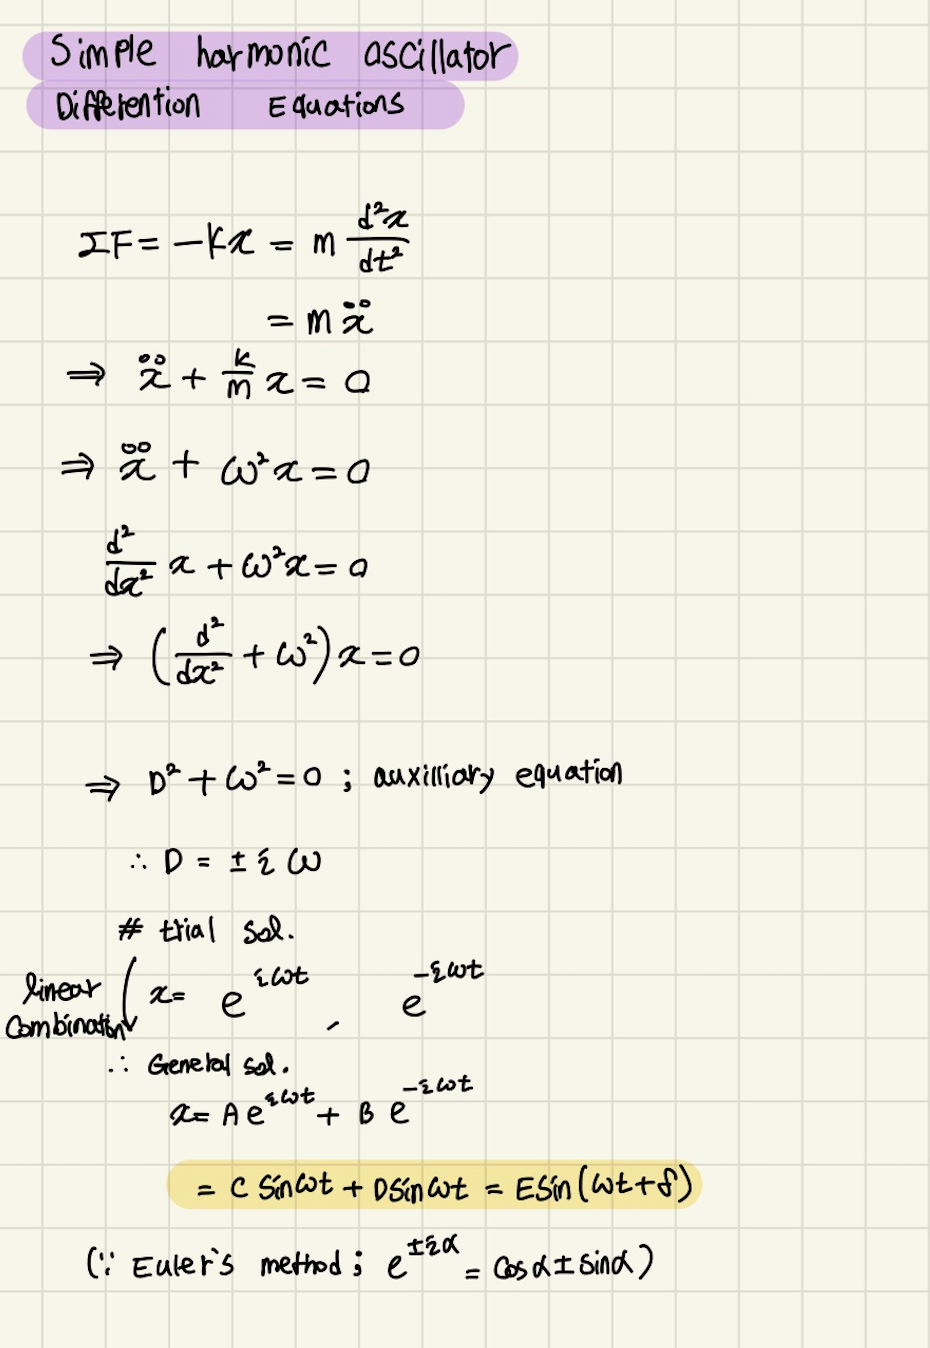 Simple harmonic oscillator
Differention Equations
ΣF = -kx = m d²x/dt²
= m ẍ
⇒ ẍ + k/m x = 0
⇒ ẍ + ω²x = 0
d²/dx² x + ω²x = 0
⇒ (d²/dx² + ω²) x = 0
⇒ D² + ω² = 0 ; auxilliary equation
∴ D = ± i ω
# trial sol.
linear combination
x = e^{iωt} , e^{-iωt}
∴ General sol.
x = A e^{iωt} + B e^{-iωt}
= C Sinωt + D Sinωt = E Sin(ωt + δ)
(∵ Euler's method ; e^{±iα} = Cosα ± Sinα)